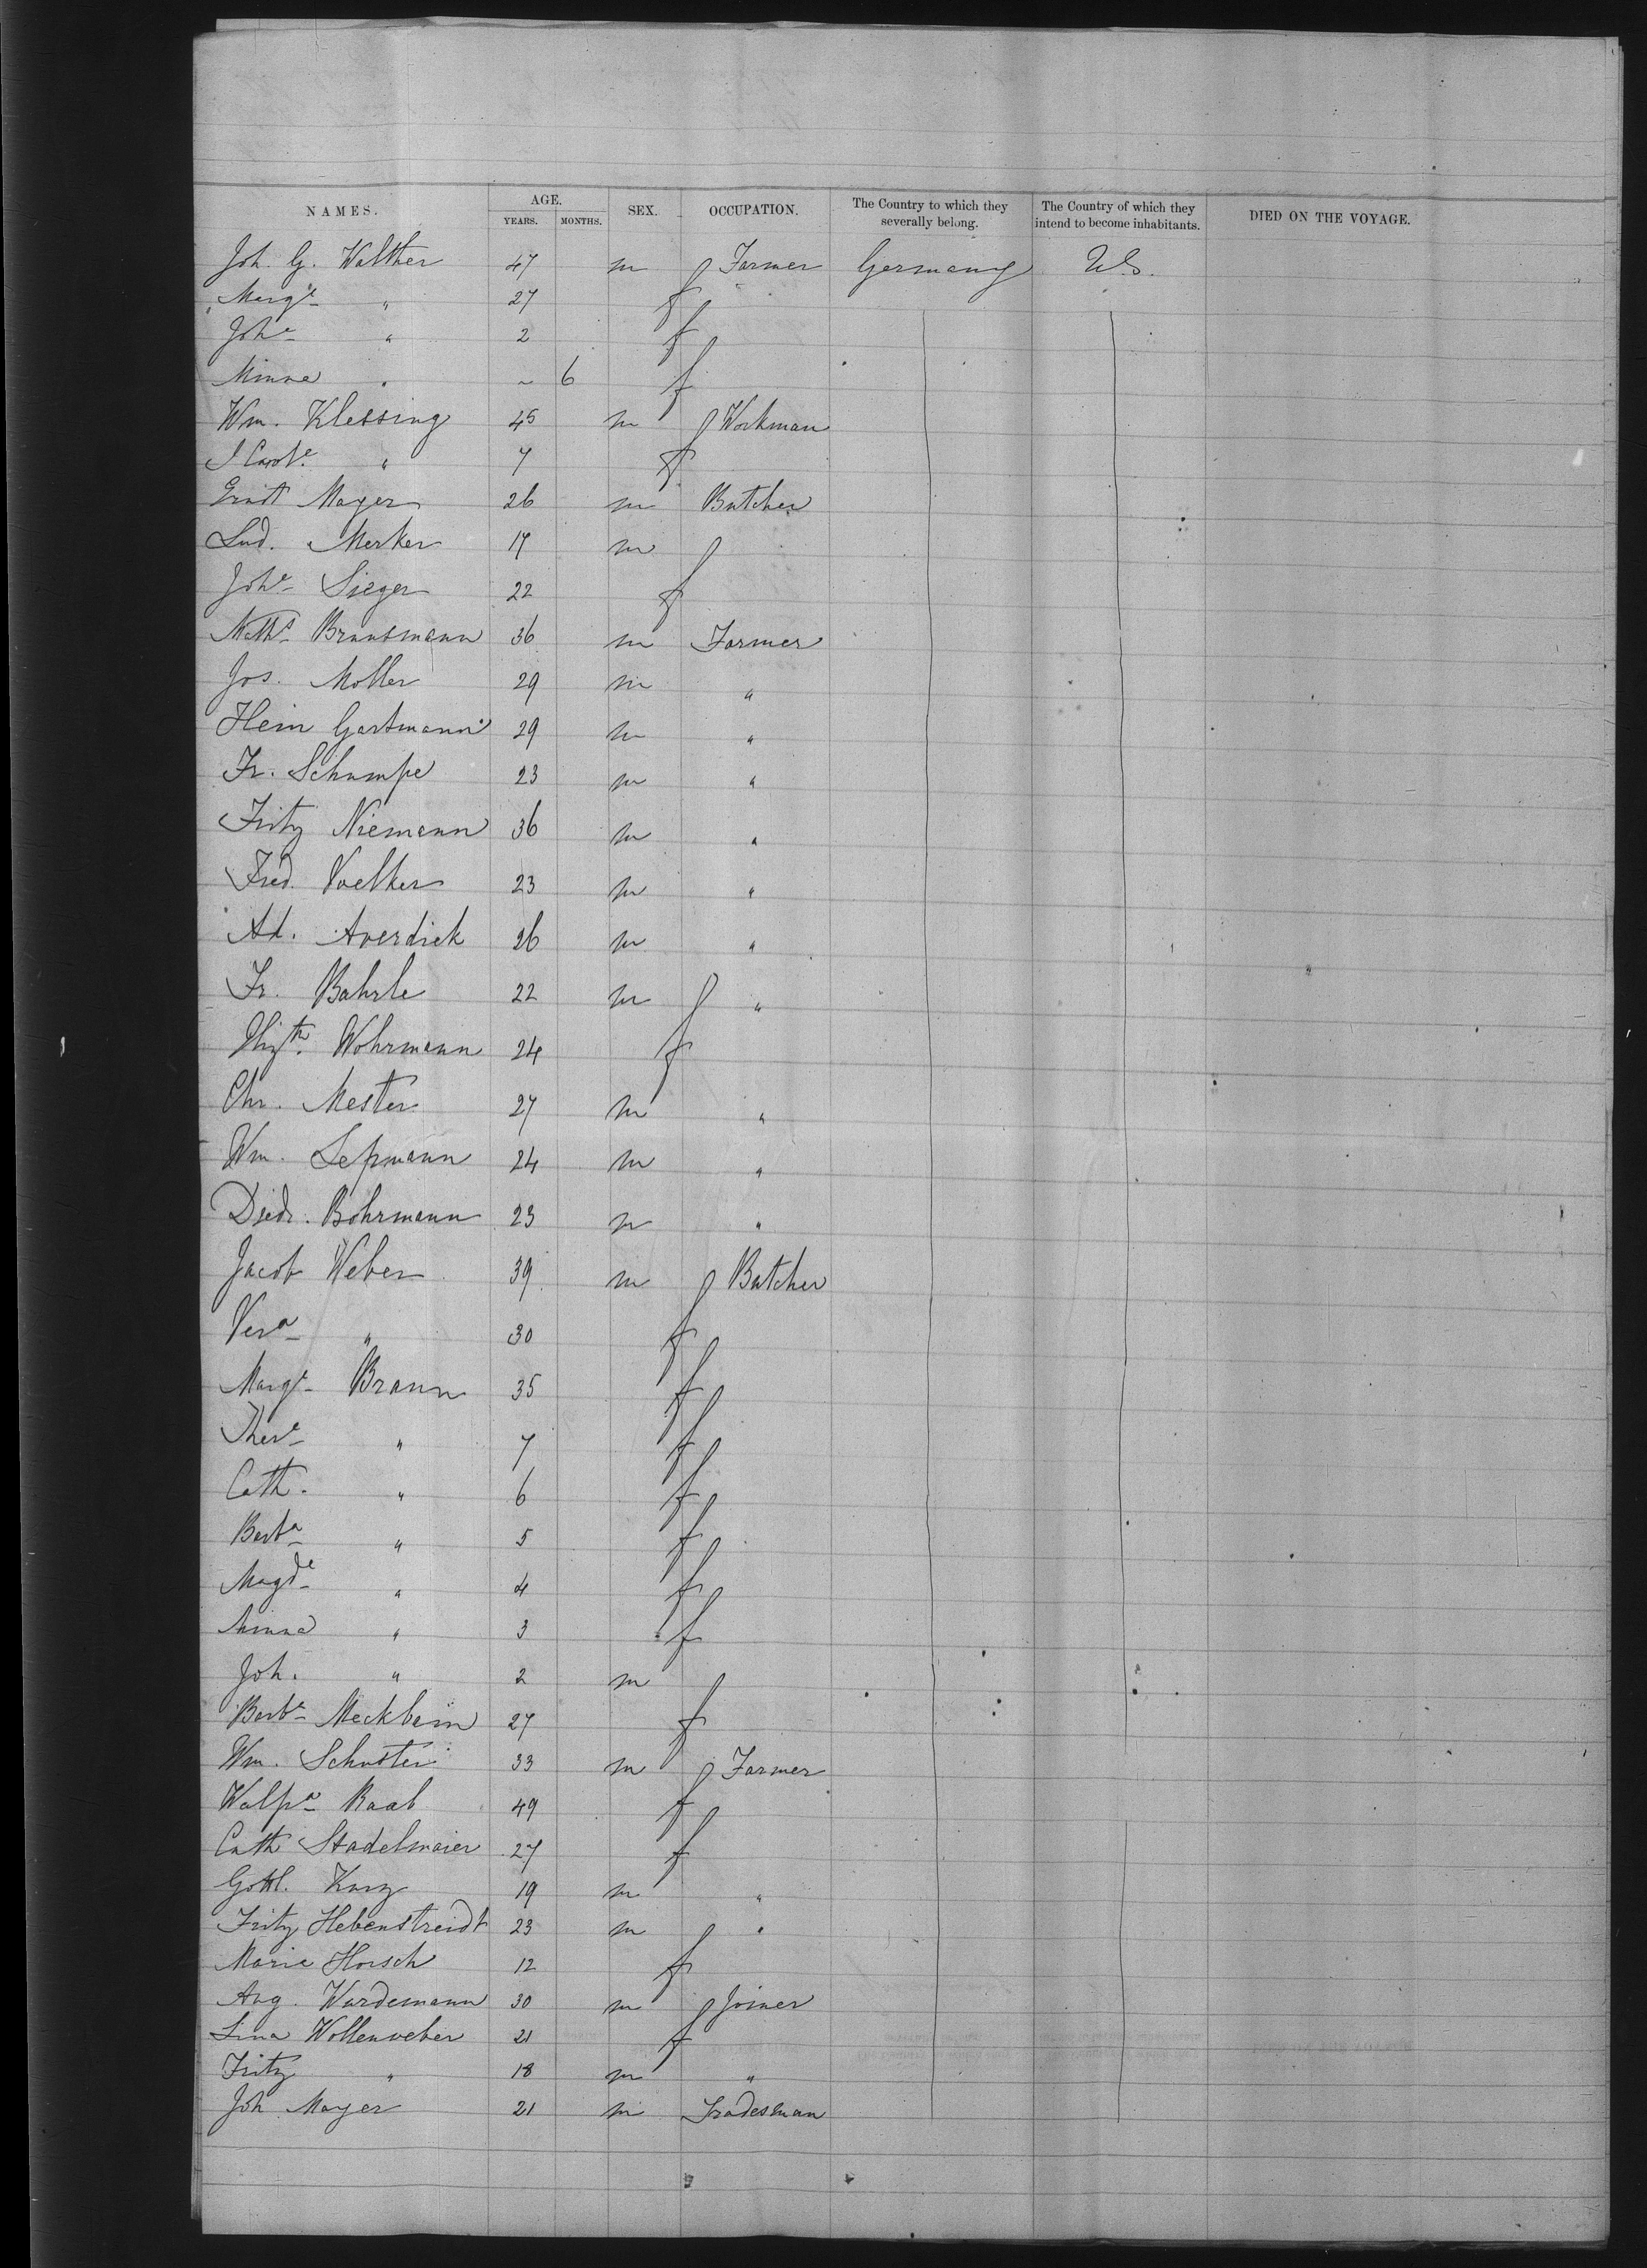 NAMES. AGE. SEX. OCCUPATION. The Country to which they severally belong. The Country of which they intend to become inhabitants. DIED ON THE VOYAGE.
YEARS. MONTHS.
Joh. G. Walther 47 m Farmer Germany U.S.
Marg.e " 27 f
Joh.e " 2 f
Minna " ~ 6 f
Wm. Klessing 45 m Workman
" 7 f
Ernst Mayer 26 m Butcher
Lud. Merker 17 m
Joh.e Sieger 22 f
Math.s Brunsmann 36 m Farmer
Jos. Moller 29 m "
Hein Gartmann 29 m "
Fr. Schumpe 23 m "
Fritz Niemann 36 m "
Fred. Voelker 23 m "
Ad. Averdick 26 m "
Fr. Bahrle 22 m "
Wohrmann 24 f
Chr. Mester 27 m "
Wm. Lessmann 24 m "
Diedr. Bohrmann 23 m "
Jacob Weber 39 m Butcher
Ver.a " 30 f
Marg.e Braun 35 f
Ther.e " 7 f
Cath. " 6 f
Barb.a " 5 f
Magd.e " 4 f
Minna " 3 f
Joh. " 2 m
Barb.a Meckbein 27 f
Wm. Schuster 33 m Farmer
Walp.a Raab 49 f
Cath Stadelmaier 27 f
Gottl. Kurz 19 m "
Fritz Hebenstreidt 23 m "
Marie Horsch 12 f
Aug. Wardemann 30 m Joiner
Lina Wollenweber 21 f
Fritz " 18 m "
Joh Mayer 21 m Tradesman